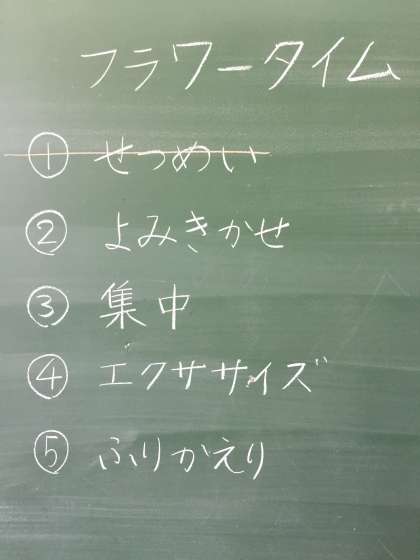 フラワータイム
① せつめい
② よみきかせ
③ 集中
④ エクササイズ
⑤ ふりかえり